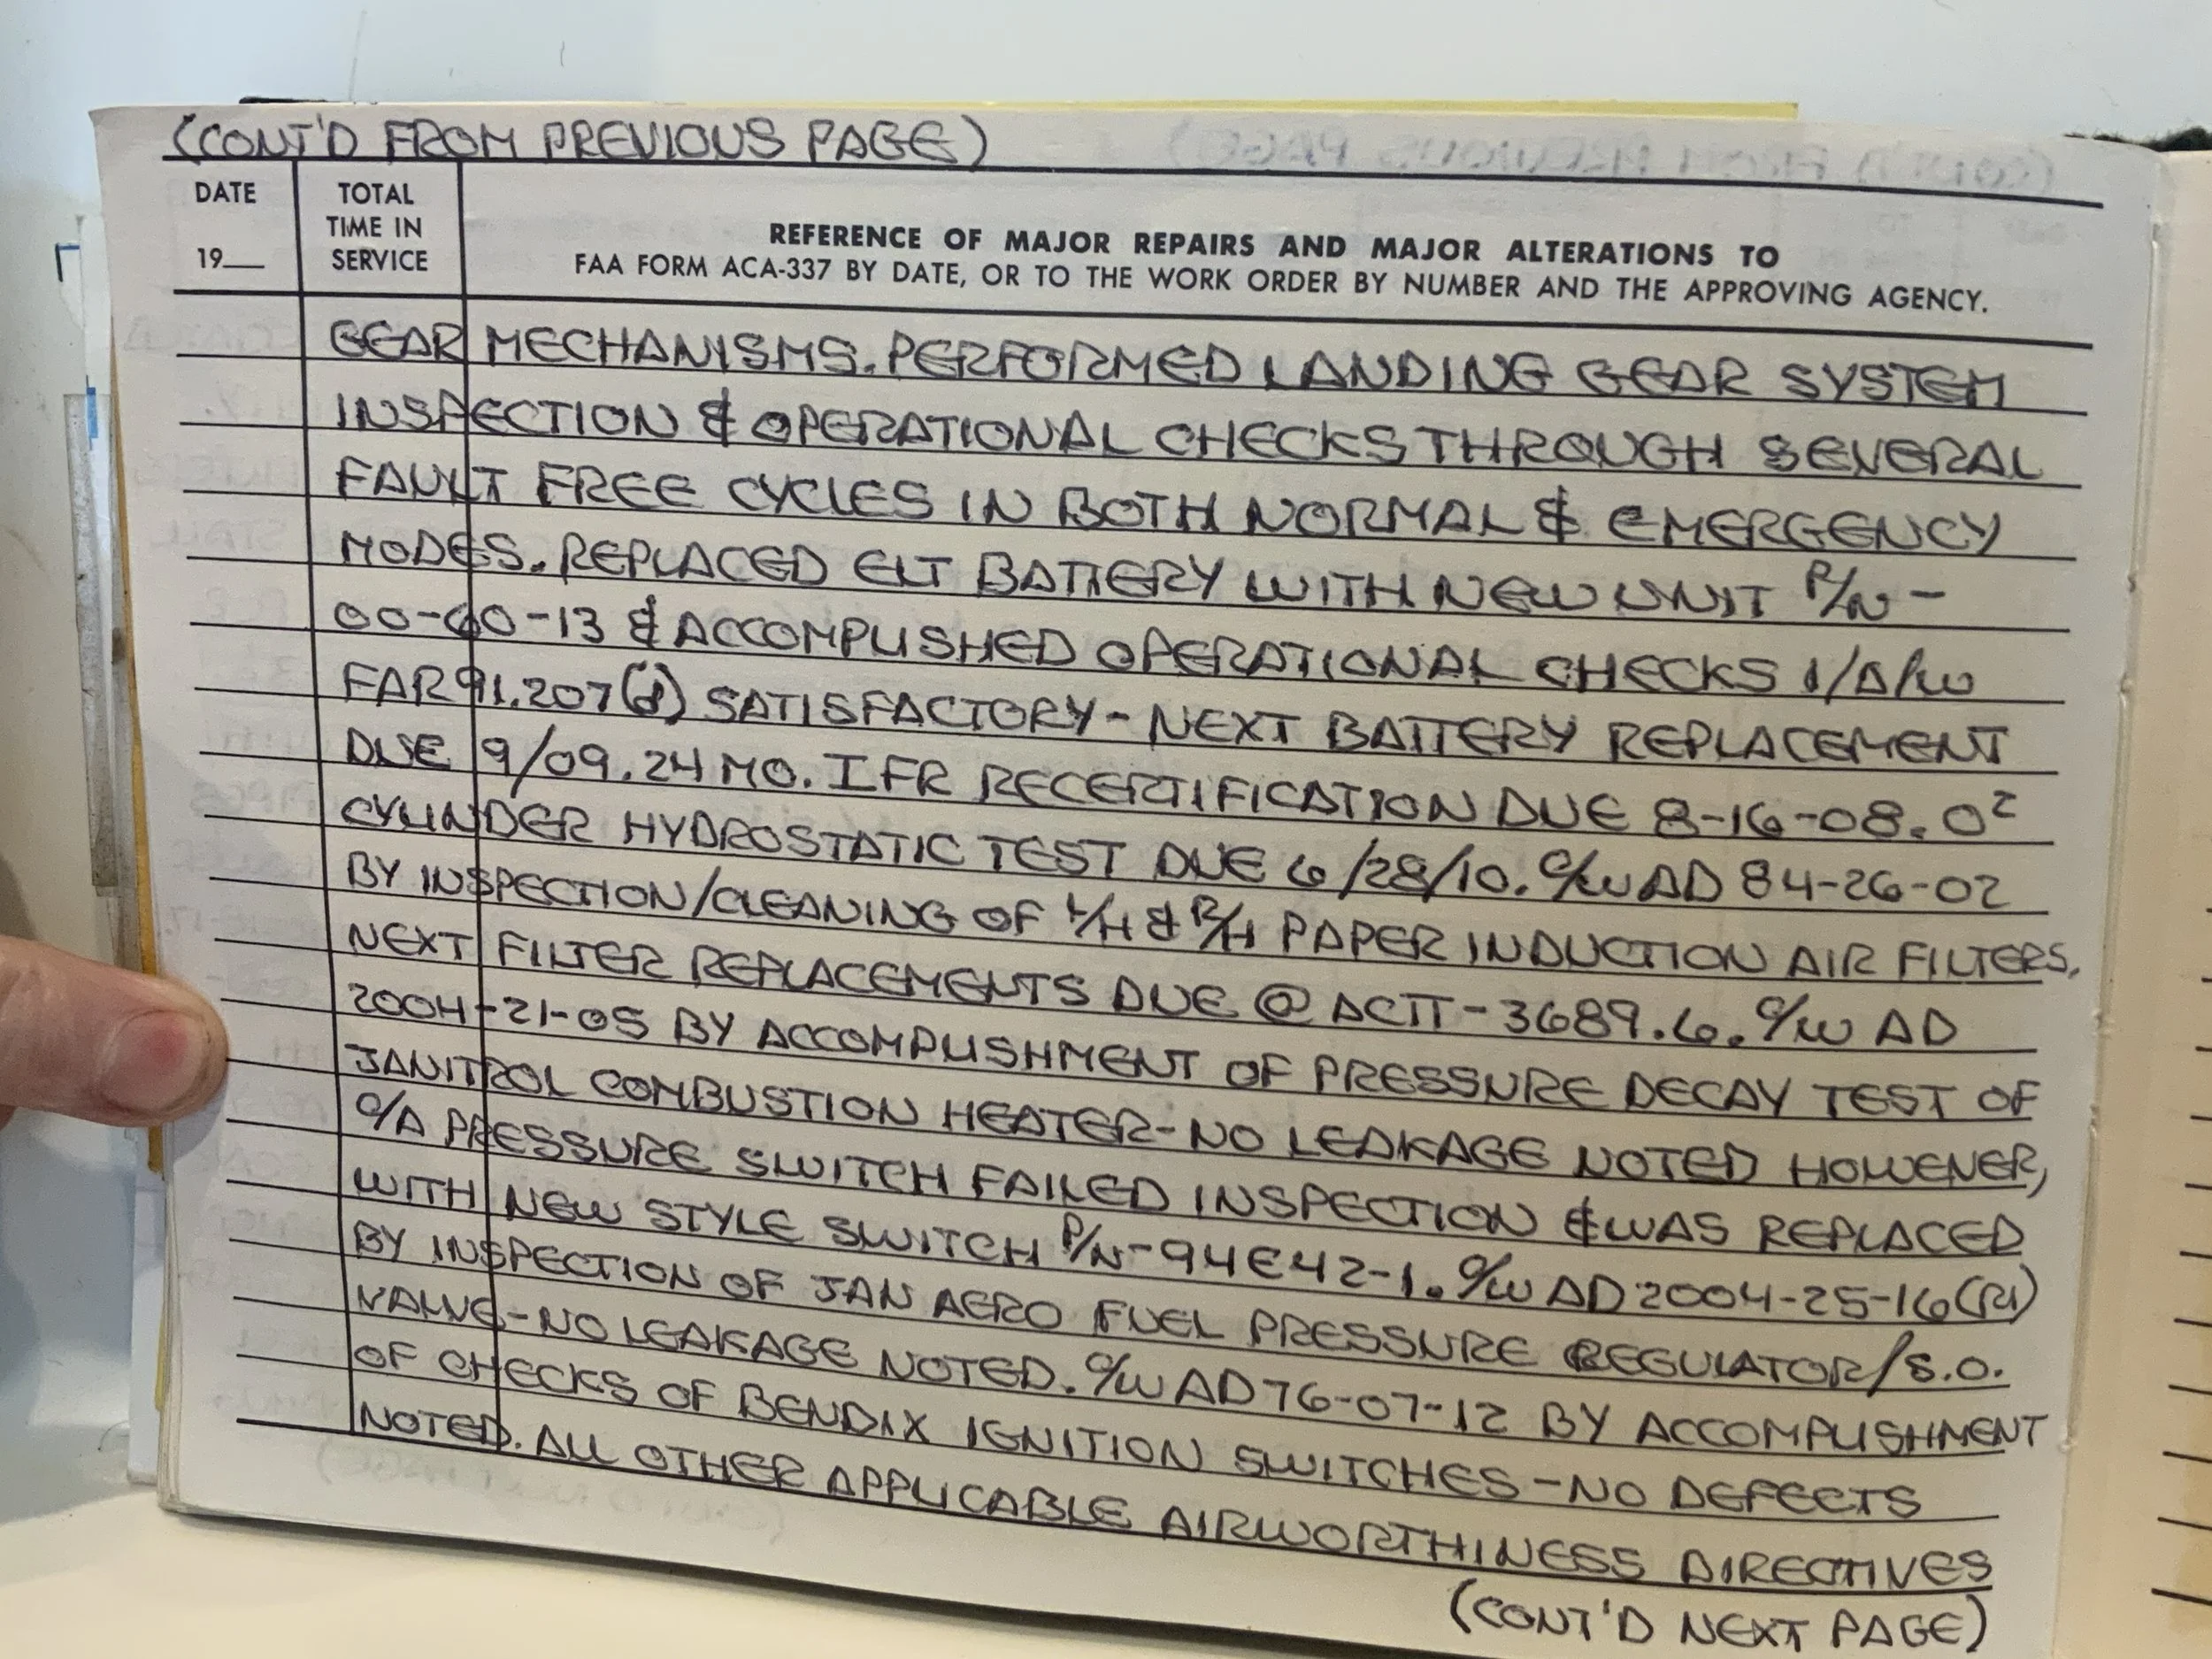 (CONT'D FROM PREVIOUS PAGE)
DATE
19__
TOTAL
TIME IN
SERVICE
REFERENCE OF MAJOR REPAIRS AND MAJOR ALTERATIONS TO
FAA FORM ACA-337 BY DATE, OR TO THE WORK ORDER BY NUMBER AND THE APPROVING AGENCY.
GEAR MECHANISMS. PERFORMED LANDING GEAR SYSTEM
INSPECTION & OPERATIONAL CHECKS THROUGH SEVERAL
FAULT FREE CYCLES IN BOTH NORMAL & EMERGENCY
MODES. REPLACED ELT BATTERY WITH NEW UNIT P/N-
00-60-13 & ACCOMPLISHED OPERATIONAL CHECKS I/A/W
FAR 91.207(d) SATISFACTORY - NEXT BATTERY REPLACEMENT
DUE 9/09. 24 MO. IFR RECERTIFICATION DUE 8-16-08. O²
CYLINDER HYDROSTATIC TEST DUE 6/28/10. C/W AD 84-26-02
BY INSPECTION/CLEANING OF L/H & R/H PAPER INDUCTION AIR FILTERS.
NEXT FILTER REPLACEMENTS DUE @ ACTT-3689.6. C/W AD
2004-21-05 BY ACCOMPLISHMENT OF PRESSURE DECAY TEST OF
JANITROL COMBUSTION HEATER-NO LEAKAGE NOTED HOWEVER,
C/A PRESSURE SWITCH FAILED INSPECTION & WAS REPLACED
WITH NEW STYLE SWITCH P/N-94E42-1. C/W AD 2004-25-16(R1)
BY INSPECTION OF JAN AERO FUEL PRESSURE REGULATOR/S.O.
VALVE-NO LEAKAGE NOTED. C/W AD 76-07-12 BY ACCOMPLISHMENT
OF CHECKS OF BENDIX IGNITION SWITCHES - NO DEFECTS
NOTED. ALL OTHER APPLICABLE AIRWORTHINESS DIRECTIVES
(CONT'D NEXT PAGE)